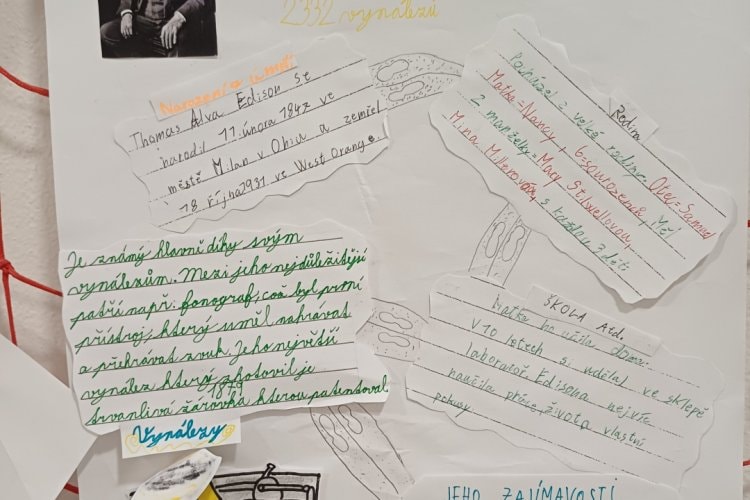 2332 vynálezů
Narození a úmrtí
Thomas Alva Edison se
narodil 11. února 1847 ve
městě Milan v Ohiu a zemřel
18 října 1931 ve West Orange.
Rodina
Pocházel z velké rodiny. Otec=Samuel
Matka=Nancy, 6=sourozenců, Měl
2 manželky=Mary Stilwellovou,
Mina Millerovou, s každou 3 děti
Je známý hlavně díky svým
vynálezům. Mezi jeho nejdůležitější
patří např. fonograf, což byl první
přístroj, který uměl nahrávat
a přehrávat zvuk. Jeho největší
vynález který zhotovil je
1879
trvanlivá žárovka kterou patentoval
Vynálezy
ŠKOLA Atd.
Matka ho učila doma.
V 10 letech s udělal ve sklepě
laboratoř. Edisona nejvíce
naučila práce, života vlastní
pokusy
JEHO ZAJÍMAVOSTI